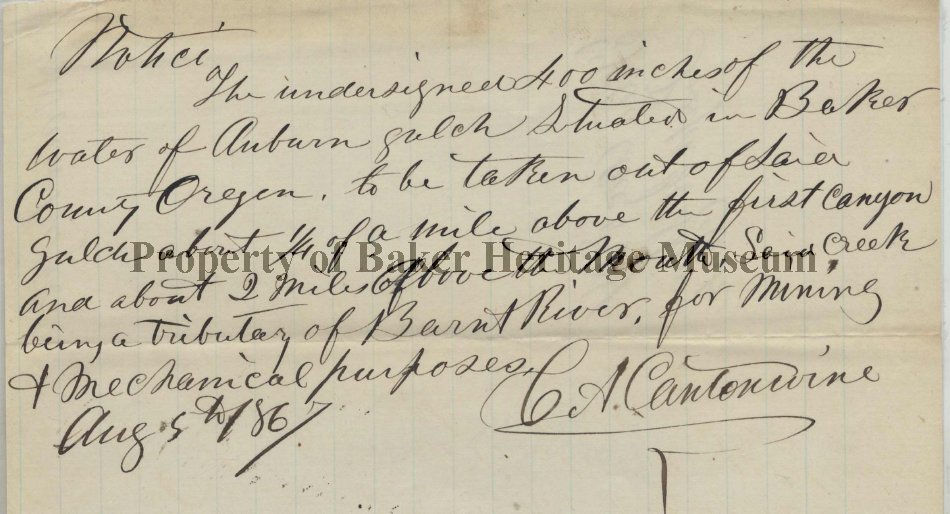 Notice
The undersigned 400 inches of the
water of Auburn gulch Situated in Baker
County Oregon, to be taken out of Said
Gulch about 1/4 of a mile above the first Canyon
and about 2 miles above the Mouth, Said Creek
being a tributary of Barnt River, for Mining
& Mechanical purposes,
Aug 5th 1867
C A. Cantonwine
Property of Baker Heritage Museum